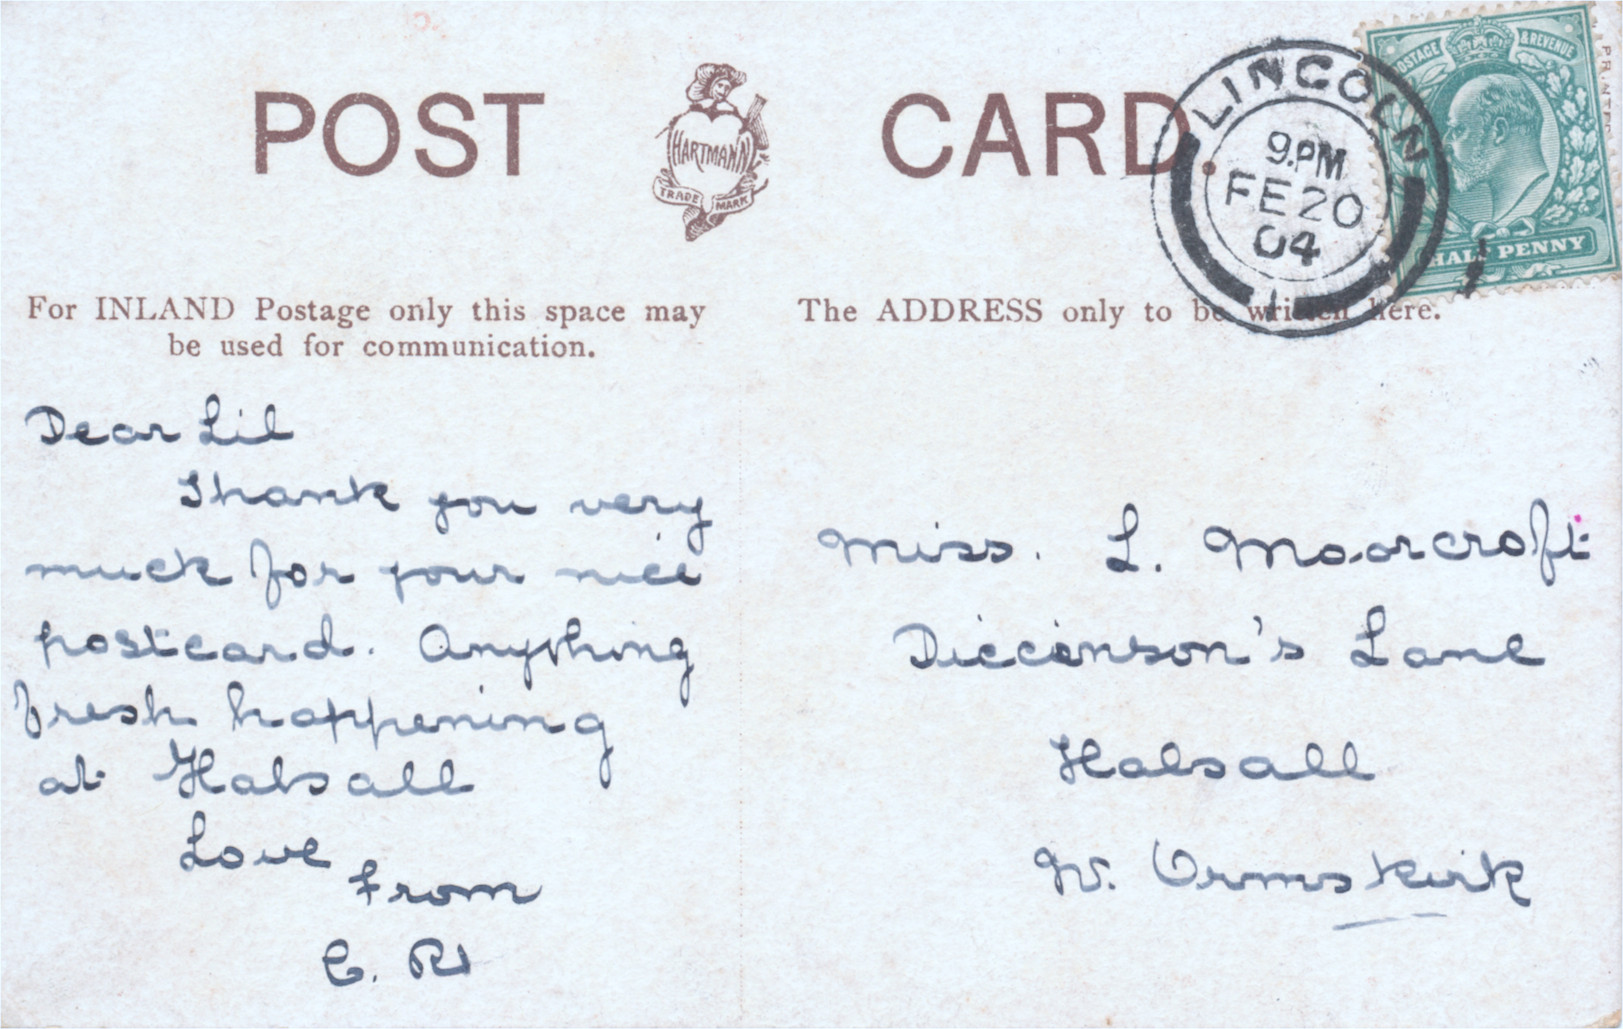 POST CARD.
HARTMANN
TRADE MARK
LINCOLN
9.PM
FE 20
04
1
POSTAGE & REVENUE
HALF PENNY
For INLAND Postage only this space may
be used for communication.
The ADDRESS only to be written here.
Dear Lil
Thank you very
much for your nice
postcard. Anything
fresh happening
at Halsall
Love
from
Miss. L. Moorcroft
Diccinson's Lane
Halsall
Ormskirk